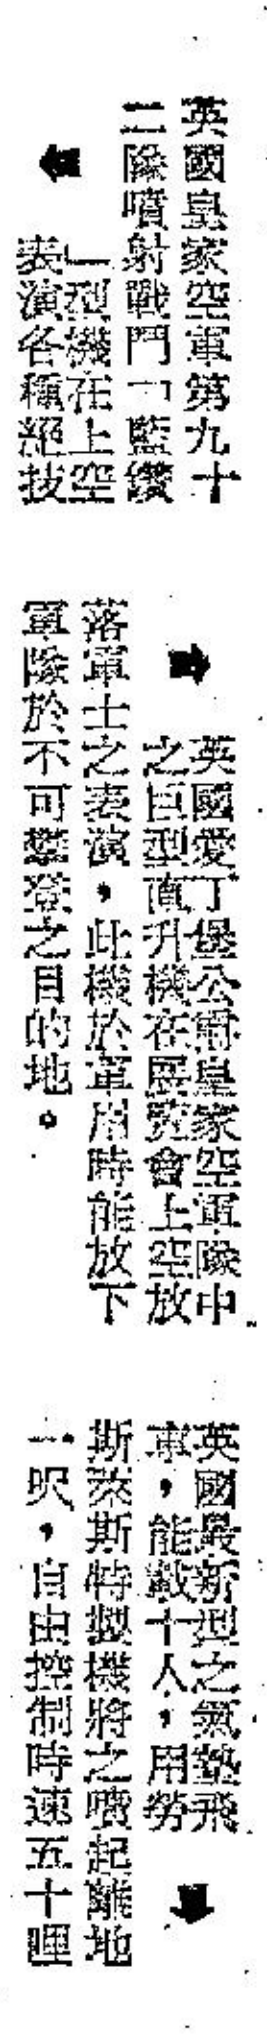 英國皇家空軍第九十
二隊噴射戰鬥「藍鑽
」型機在上空
表演各種絕技
英國愛丁堡公爵皇家空軍隊中
之巨型直升機在展覽會上空放
落軍士之表演,此機於軍用時能放下
軍隊於不可攀登之目的地。
英國最新型之氣墊飛
車,能載十人,用勞
斯萊斯特製機將之噴起離地
一呎,自由控制時速五十哩